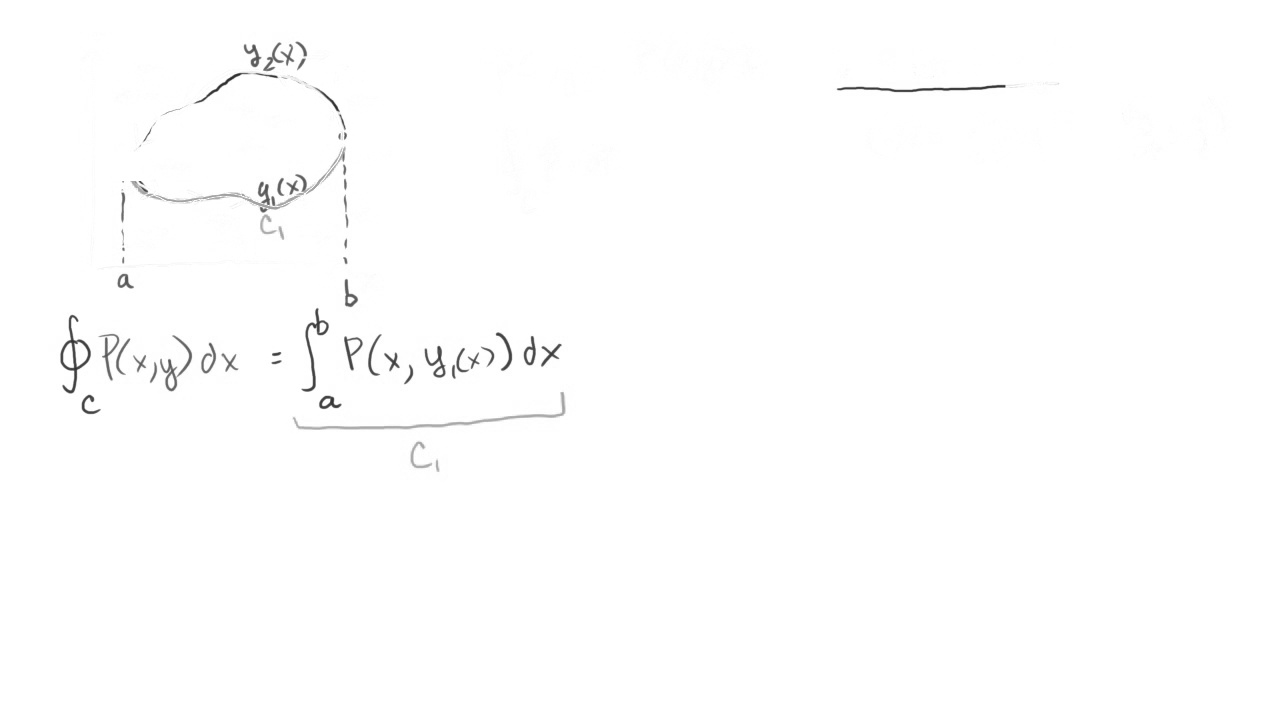 y₂(x)
y₁(x)
C₁
a
b
∮_C P(x,y) dx = ∫_a^b P(x, y₁(x)) dx
C₁